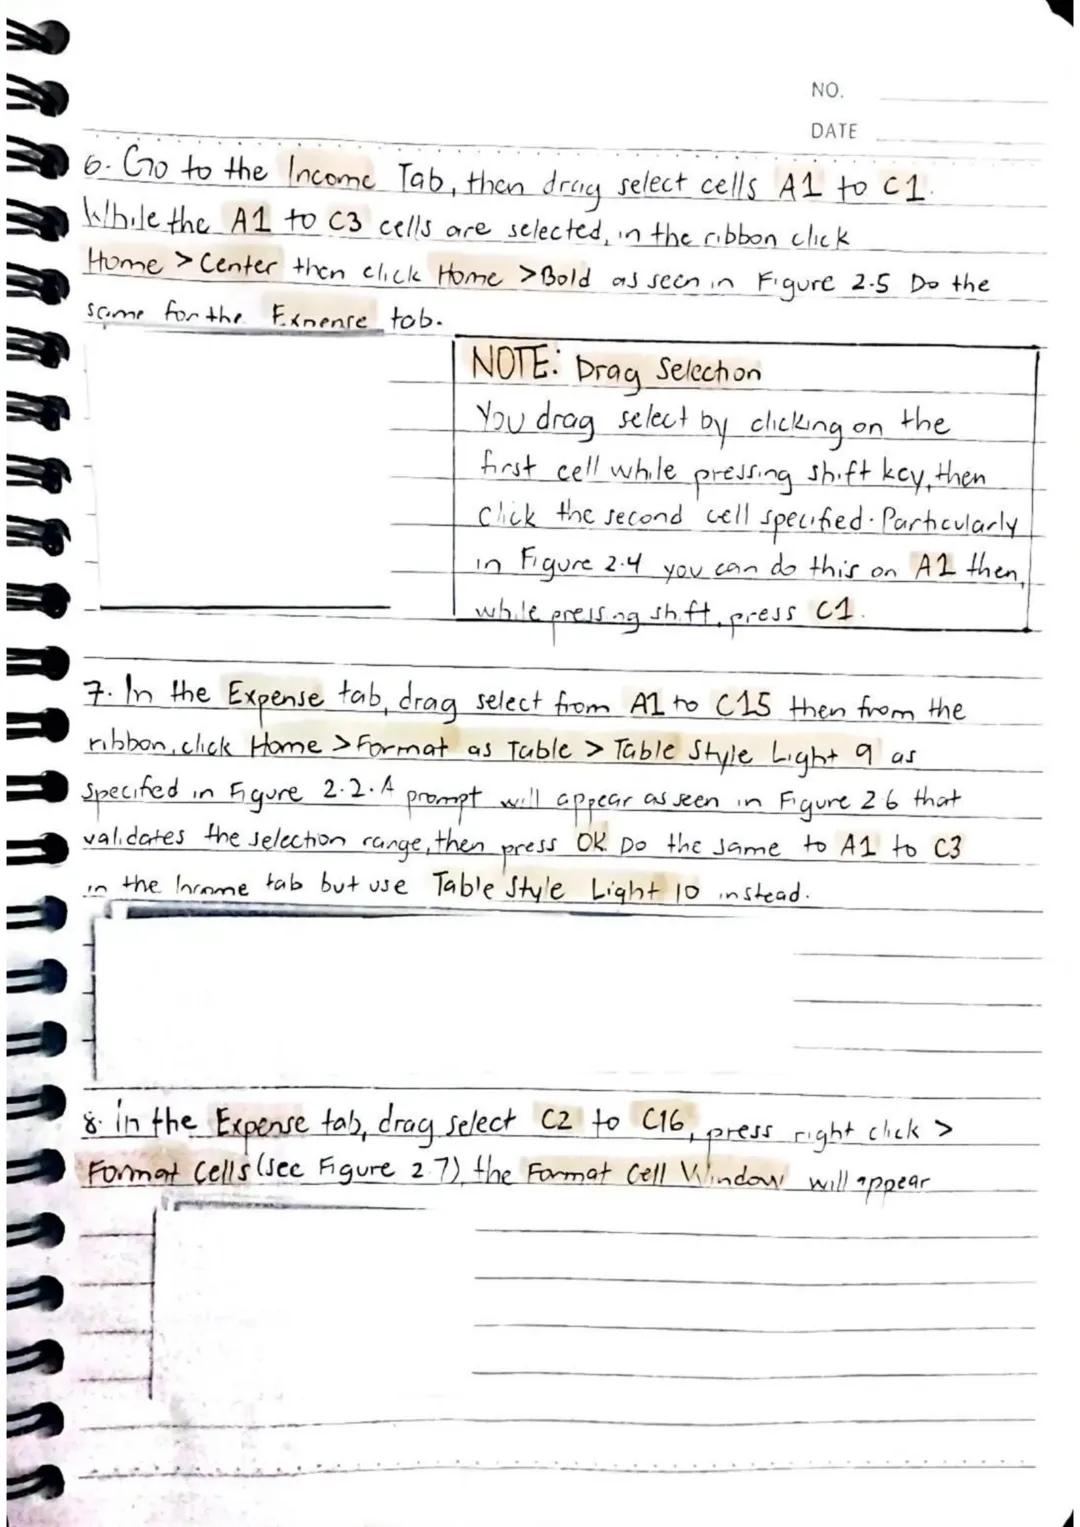 NO.
DATE
6. Go to the Income Tab, then drag select cells A1 to C1.
While the A1 to C3 cells are selected, in the ribbon click
Home > Center then click Home > Bold as seen in Figure 2.5 Do the
same for the Expense tab.
NOTE: Drag Selection
You drag select by clicking on the
first cell while pressing shift key, then
click the second cell specified. Particularly
in Figure 2.4 you can do this on A1 then,
while pressing shift, press C1.
7. In the Expense tab, drag select from A1 to C15 then from the
ribbon, click Home > Format as Table > Table Style Light 9 as
specified in Figure 2.2. A prompt will appear as seen in Figure 2.6 that
validates the selection range, then press OK. Do the same to A1 to C3
in the Income tab but use Table Style Light 10 instead.
8. In the Expense tab, drag select C2 to C16, press right click >
Format Cells (see Figure 2.7), the Format Cell Window will appear